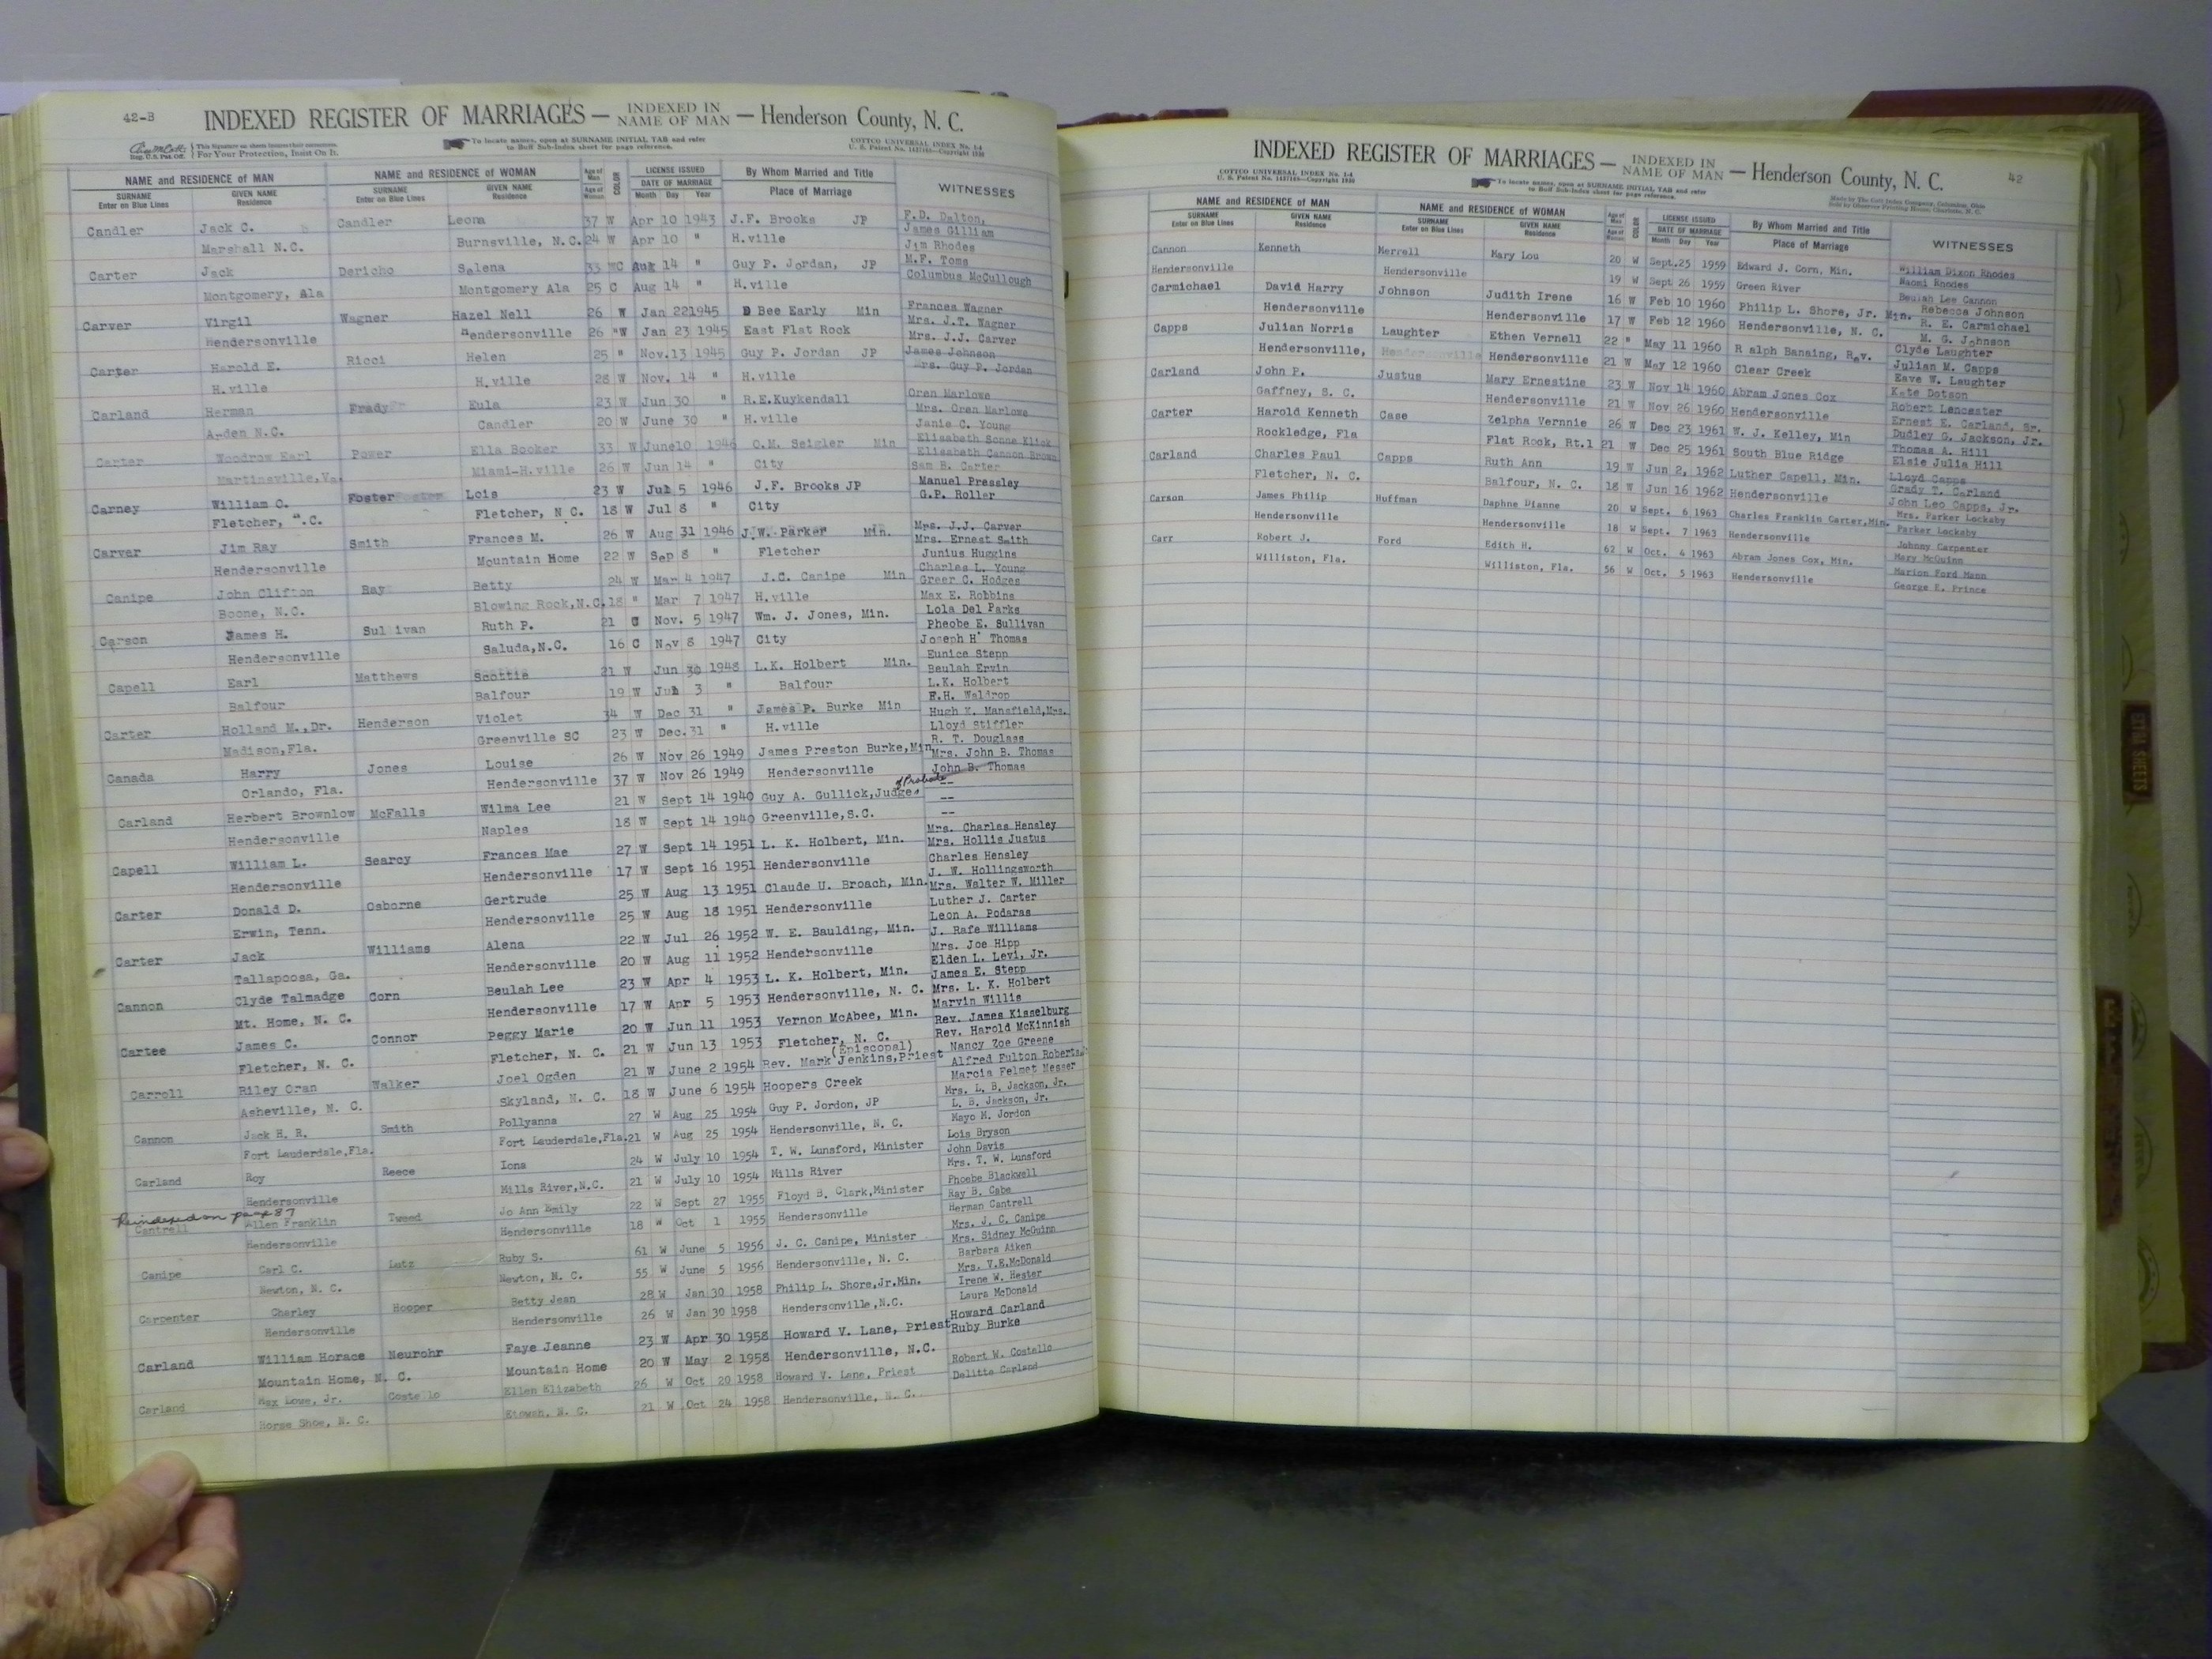 42-B
INDEXED REGISTER OF MARRIAGES — INDEXED IN NAME OF MAN — Henderson County, N. C.
Reg. U.S. Pat. Off. This Signature on sheets insures their correctness. For Your Protection, Insist On It.
To locate names, open at SURNAME INITIAL TAB and refer to Buff Sub-Index sheet for page reference.
COTTCO UNIVERSAL INDEX No. 1-4
NAME and RESIDENCE OF MAN NAME and RESIDENCE OF WOMAN Age of Man COLOR LICENSE ISSUED By Whom Married and Title WITNESSES
SURNAME Enter on Blue Lines GIVEN NAME Residence SURNAME Enter on Blue Lines GIVEN NAME Residence Age of Woman DATE OF MARRIAGE Month Day Year Place of Marriage
Candler Jack C. Candler Leona 37 W Apr 10 1943 J.F. Brooks JP F.D. Dalton,
James Gilliam
Marshall N.C. Burnsville, N.C. 24 W Apr 10 " H.ville Jim Rhodes
Carter Jack Dericho Salena 33 C Aug 14 " Guy P. Jordan, JP M.F. Toms
Columbus McCullough
Montgomery, Ala Montgomery Ala 25 C Aug 14 " H.ville
Carver Virgil Wagner Hazel Nell 26 W Jan 22 1945 Bee Early Min Frances Wagner
Mrs. J.T. Wagner
Hendersonville Hendersonville 26 "W Jan 23 1945 East Flat Rock Mrs. J.J. Carver
Carter Harold E. Ricci Helen 25 " Nov.13 1945 Guy P. Jordan JP James Johnson
Mrs. Guy P. Jordan
H.ville H.ville 28 W Nov. 14 " H.ville
Carland Herman Frady Eula 23 W Jun 30 " R.E.Kuykendall Oren Marlowe
Mrs. Oren Marlowe
Arden N.C. Candler 20 W June 30 " H.ville Janie C. Young
Carter Woodrow Earl Power Ella Booker 33 W June10 1946 O.M. Seigler Min Elisabeth Sonne Klick
Elisabeth Cannon Brown
Martinsville,Va. Miami-H.ville 26 W Jun 14 " City Sam B. Carter
Carney William O. Foster Lois 23 W Jul 5 1946 J.F. Brooks JP Manuel Pressley
G.P. Roller
Fletcher, N.C. Fletcher, N C. 18 W Jul 8 " City
Carver Jim Ray Smith Frances M. 26 W Aug 31 1946 J.W. Parker Min. Mrs. J.J. Carver
Mrs. Ernest Smith
Hendersonville Mountain Home 22 W Sep 8 " Fletcher Junius Huggins
Canipe John Clifton Ray Betty 24 W Mar 4 1947 J.C. Canipe Min Charles L. Young
Greer C. Hodges
Boone, N.C. Blowing Rock,N.C. 18 " Mar 7 1947 H.ville Max E. Robbins
Carson James H. Sullivan Ruth P. 21 C Nov. 5 1947 Wm. J. Jones, Min. Lola Del Parks
Pheobe E. Sullivan
Hendersonville Saluda,N.C. 16 C Nov 8 1947 City Joseph H Thomas
Capell Earl Matthews Scottie 21 W Jun 30 1948 L.K. Holbert Min. Eunice Stepp
Beulah Ervin
Balfour Balfour 19 W Jul 3 " Balfour L.K. Holbert
F.H. Waldrop
Carter Holland M.,Dr. Henderson Violet 34 W Dec 31 " James P. Burke Min Hugh K. Mansfield,Mrs.
Madison,Fla. Greenville SC 23 W Dec.31 " H.ville Lloyd Stiffler
R. T. Douglass
Canada Harry Jones Louise 26 W Nov 26 1949 James Preston Burke,Min Mrs. John B. Thomas
Orlando, Fla. Hendersonville 37 W Nov 26 1949 Hendersonville John B. Thomas
of Probate
Carland Herbert Brownlow McFalls Wilma Lee 21 W Sept 14 1940 Guy A. Gullick,Judge --
--
Hendersonville Naples 18 W Sept 14 1940 Greenville,S.C. --
Capell William L. Searcy Frances Mae 27 W Sept 14 1951 L. K. Holbert, Min. Mrs. Charles Hensley
Mrs. Hollis Justus
Hendersonville Hendersonville 17 W Sept 16 1951 Hendersonville Charles Hensley
J. W. Hollingsworth
Carter Donald D. Osborne Gertrude 25 W Aug 13 1951 Claude U. Broach, Min. Mrs. Walter W. Miller
Erwin, Tenn. Hendersonville 25 W Aug 18 1951 Hendersonville Luther J. Carter
Leon A. Podaras
Carter Jack Williams Alena 22 W Jul 26 1952 W. E. Baulding, Min. J. Rafe Williams
Mrs. Joe Hipp
Tallapoosa, Ga. Hendersonville 20 W Aug 11 1952 Hendersonville Elden L. Levi, Jr.
Cannon Clyde Talmadge Corn Beulah Lee 23 W Apr 4 1953 L. K. Holbert, Min. James E. Stepp
Mrs. L. K. Holbert
Mt. Home, N. C. Hendersonville 17 W Apr 5 1953 Hendersonville, N. C. Marvin Willis
Cartee James C. Connor Peggy Marie 20 W Jun 11 1953 Vernon McAbee, Min. Rev. James Kisselburg
Rev. Harold McKinnish
Fletcher, N. C. Fletcher, N. C. 21 W Jun 13 1953 Fletcher, N. C. Nancy Zoe Greene
(Episcopal)
Carroll Riley Oran Walker Joel Ogden 21 W June 2 1954 Rev. Mark Jenkins,Priest Alfred Fulton Roberts
Marcia Felmet Messer
Asheville, N. C. Skyland, N. C. 18 W June 6 1954 Hoopers Creek Mrs. L. B. Jackson, Jr.
Cannon Jack H. R. Smith Pollyanna 27 W Aug 25 1954 Guy P. Jordon, JP L. B. Jackson, Jr.
Mayo M. Jordon
Fort Lauderdale,Fla. Fort Lauderdale,Fla. 21 W Aug 25 1954 Hendersonville, N. C. Lois Bryson
Carland Roy Reece Iona 24 W July 10 1954 T. W. Lunsford, Minister John Davis
Mrs. T. W. Lunsford
Hendersonville Mills River,N.C. 21 W July 10 1954 Mills River Phoebe Blackwell
Reindexed on page 87
Cantrell Allen Franklin Tweed Jo Ann Emily 22 W Sept 27 1955 Floyd B. Clark,Minister Ray B. Cabe
Herman Cantrell
Hendersonville Hendersonville 18 W Oct 1 1955 Hendersonville Mrs. J. C. Canipe
Canipe Carl C. Lutz Ruby S. 61 W June 5 1956 J. C. Canipe, Minister Mrs. Sidney McGuinn
Barbara Aiken
Newton, N. C. Newton, N. C. 55 W June 5 1956 Hendersonville, N. C. Mrs. V.E.McDonald
Carpenter Charley Hooper Betty Jean 28 W Jan 30 1958 Philip L. Shore,Jr.Min. Irene W. Hester
Laura McDonald
Hendersonville Hendersonville 26 W Jan 30 1958 Hendersonville,N.C.
Carland William Horace Neurohr Faye Jeanne 23 W Apr 30 1958 Howard V. Lane, Priest Howard Carland
Ruby Burke
Mountain Home, N. C. Mountain Home 20 W May 2 1958 Hendersonville, N.C.
Carland Max Lowe, Jr. Costello Ellen Elizabeth 26 W Oct 20 1958 Howard V. Lane, Priest Robert W. Costello
Delitte Carland
Horse Shoe, N. C. Etowah, N. C. 21 W Oct 24 1958 Hendersonville, N. C.
INDEXED REGISTER OF MARRIAGES — INDEXED IN NAME OF MAN — Henderson County, N. C. 42
COTTCO UNIVERSAL INDEX No. 1-4
To locate names, open at SURNAME INITIAL TAB and refer to Buff Sub-Index sheet for page reference.
Made by The Cott Index Company, Columbus, Ohio
Sold by Observer Printing House, Charlotte, N. C.
NAME and RESIDENCE OF MAN NAME and RESIDENCE OF WOMAN Age of Man COLOR LICENSE ISSUED By Whom Married and Title WITNESSES
SURNAME Enter on Blue Lines GIVEN NAME Residence SURNAME Enter on Blue Lines GIVEN NAME Residence Age of Woman DATE OF MARRIAGE Month Day Year Place of Marriage
Cannon Kenneth Merrell Mary Lou 20 W Sept.25 1959 Edward J. Corn, Min. William Dixon Rhodes
Naomi Rhodes
Hendersonville Hendersonville 19 W Sept 26 1959 Green River Beulah Lee Cannon
Carmichael David Harry Johnson Judith Irene 16 W Feb 10 1960 Philip L. Shore, Jr. Min. Rebecca Johnson
R. E. Carmichael
Hendersonville Hendersonville 17 W Feb 12 1960 Hendersonville, N. C. M. G. Johnson
Capps Julian Norris Laughter Ethen Vernell 22 " May 11 1960 R alph Banaing, Rev. Clyde Laughter
Julian M. Capps
Hendersonville, Hendersonville Hendersonville 21 W May 12 1960 Clear Creek Eave W. Laughter
Carland John P. Justus Mary Ernestine 23 W Nov 14 1960 Abram Jones Cox Kate Dotson
Robert Lancaster
Gaffney, S. C. Hendersonville 21 W Nov 26 1960 Hendersonville Ernest E. Carland, Sr.
Carter Harold Kenneth Case Zelpha Vernnie 26 W Dec 23 1961 W. J. Kelley, Min Dudley G. Jackson, Jr.
Thomas A. Hill
Rockledge, Fla Flat Rock, Rt.1 21 W Dec 25 1961 South Blue Ridge Elsie Julia Hill
Carland Charles Paul Capps Ruth Ann 19 W Jun 2, 1962 Luther Capell, Min. Lloyd Capps
Grady T. Carland
Fletcher, N. C. Balfour, N. C. 18 W Jun 16 1962 Hendersonville John Leo Capps, Jr.
Carson James Philip Huffman Daphne Dianne 20 W Sept. 6 1963 Charles Franklin Carter,Min. Mrs. Parker Lockaby
Parker Lockaby
Hendersonville Hendersonville 18 W Sept. 7 1963 Hendersonville Johnny Carpenter
Carr Robert J. Ford Edith H. 62 W Oct. 4 1963 Abram Jones Cox, Min. Mary McGuinn
Marion Ford Mann
Williston, Fla. Williston, Fla. 56 W Oct. 5 1963 Hendersonville George E. Prince